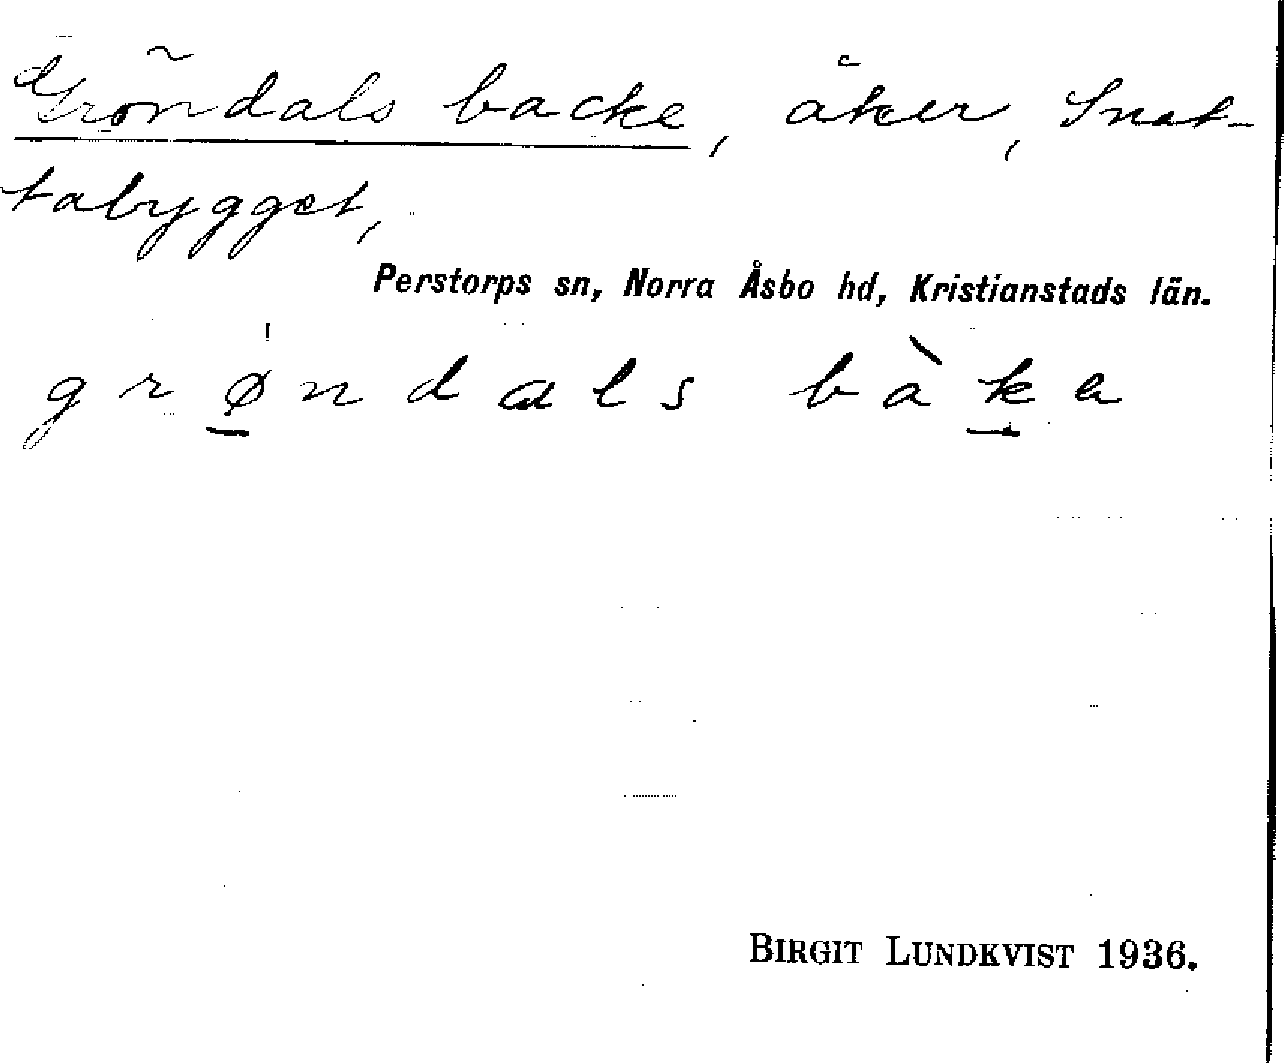 Gröndals backe, åker, Snat-
tabygget,
Perstorps sn, Norra Åsbo hd, Kristianstads län.
grøndals bàka
BIRGIT LUNDKVIST 1936.